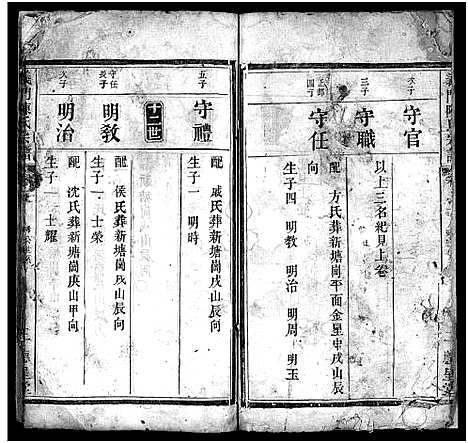 次子
守官
三子
守職
以上三名紀見上卷
四子
守任
配方氏葬新塘崗平面金星申戌山辰
向
生子四 明教 明治 明周 明玉
五子
守禮
配戚氏葬新塘崗戌山辰向
生子一 明時
十二世
守任
長子
明教
配侯氏葬新塘崗戌山辰向
生子一 士榮
次子
明治
配沈氏葬新塘崗庚山甲向
生子一 士耀